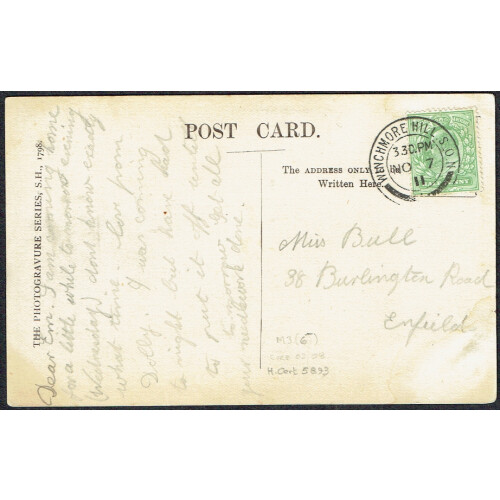 POST CARD.
THE PHOTOGRAVURE SERIES, S.H., 1798
The ADDRESS ONLY
Written Here.
WINCHMORE HILL. S.O. N
3.30.PM
NO 7
11
Dear Em. I am coming home
for a little while tomorrow evening
(Wednesday) dont know exactly
what time. Love from
Dolly. I was coming
to night but have had
to put it off until
tomorrow get all
your needlework done.
Miss Bull
38 Burlington Road
Enfield
M3(6)
H. Cort 5833